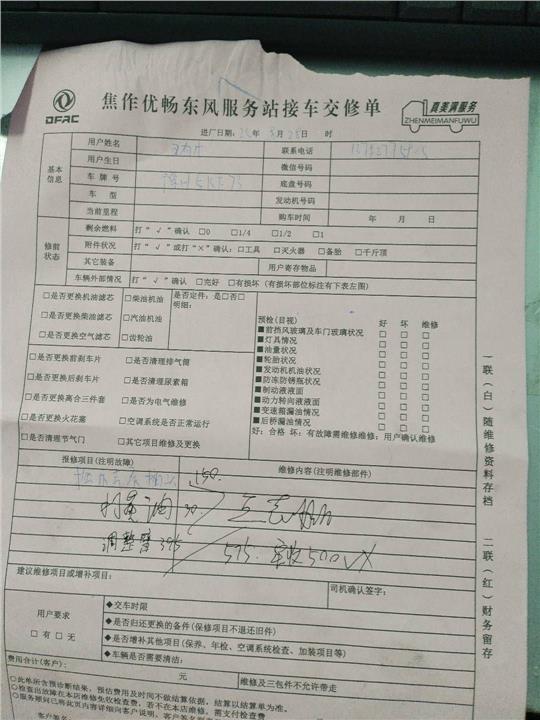 DFAC
焦作优畅东风服务站接车交修单
真美满服务
ZHENMEIMANFUWU
进厂日期: 年 月 日 时
基本信息
用户姓名 联系电话
用户生日 微信号码
车牌号 底盘号码
车型 发动机号码
当前里程 购车时间 年 月 日
修前状态
剩余燃料 打“√”确认 □0 □1/4 □1/2 □1
附件状况 打“√”或打“×”确认: □工具 □灭火器 □备胎 □千斤顶
其它装备 用户寄存物品
车辆外部情况 打“√”确认 □完好 □有损坏 (有损坏部位标注有下表左图)
□是否更换机油滤芯 □柴油机油 是否定件: 是□否□
明细:
□是否更换柴油滤芯 □汽油机油
□是否更换空气滤芯 □齿轮油
□是否更换前刹车片 □是否清理排气筒
□是否更换后刹车片 □是否清理尿素箱
□是否更换离合三件套 □是否为电气维修
□是否更换火花塞 □空调系统是否正常运行
□是否清理节气门 □其它项目维修及更换
预检(目视) 好 坏 维修
■前挡风玻璃及车门玻璃状况 □ □ □
■灯具情况 □ □ □
■油量状况 □ □ □
■轮胎状况 □ □ □
■发动机机油状况 □ □ □
■防冻防锈瓶状况 □ □ □
■制动液液面 □ □ □
■动力转向液液面 □ □ □
■变速箱漏油情况 □ □ □
■后桥漏油情况 □ □ □
好: 合格 坏: 有故障需维修维修: 用户确认维修
报修项目(注明故障) 维修内容(注明维修部件)
150.
打黄油 30.
调整管 395 575. 实收500
建议维修项目或增补项目:
司机确认签字:
用户要求
□有 □无
◆交车时限
◆是否归还更换的备件 (保修项目不退还旧件)
◆是否增补其他项目 (保养、年检、空调系统检查、加装项目等)
◆车辆是否需要清洁:
费用合计(客户): 元 维修及三包件不允许带走
◇此单含预诊断结果, 预估费用及时间不做结算依据, 结算以结算单为准。
◇检查出故障在本店维修免收检查费, 若不在本店维修, 需支付检查费
客户签名
一联(白)随维修资料存档
二联(红)财务留存